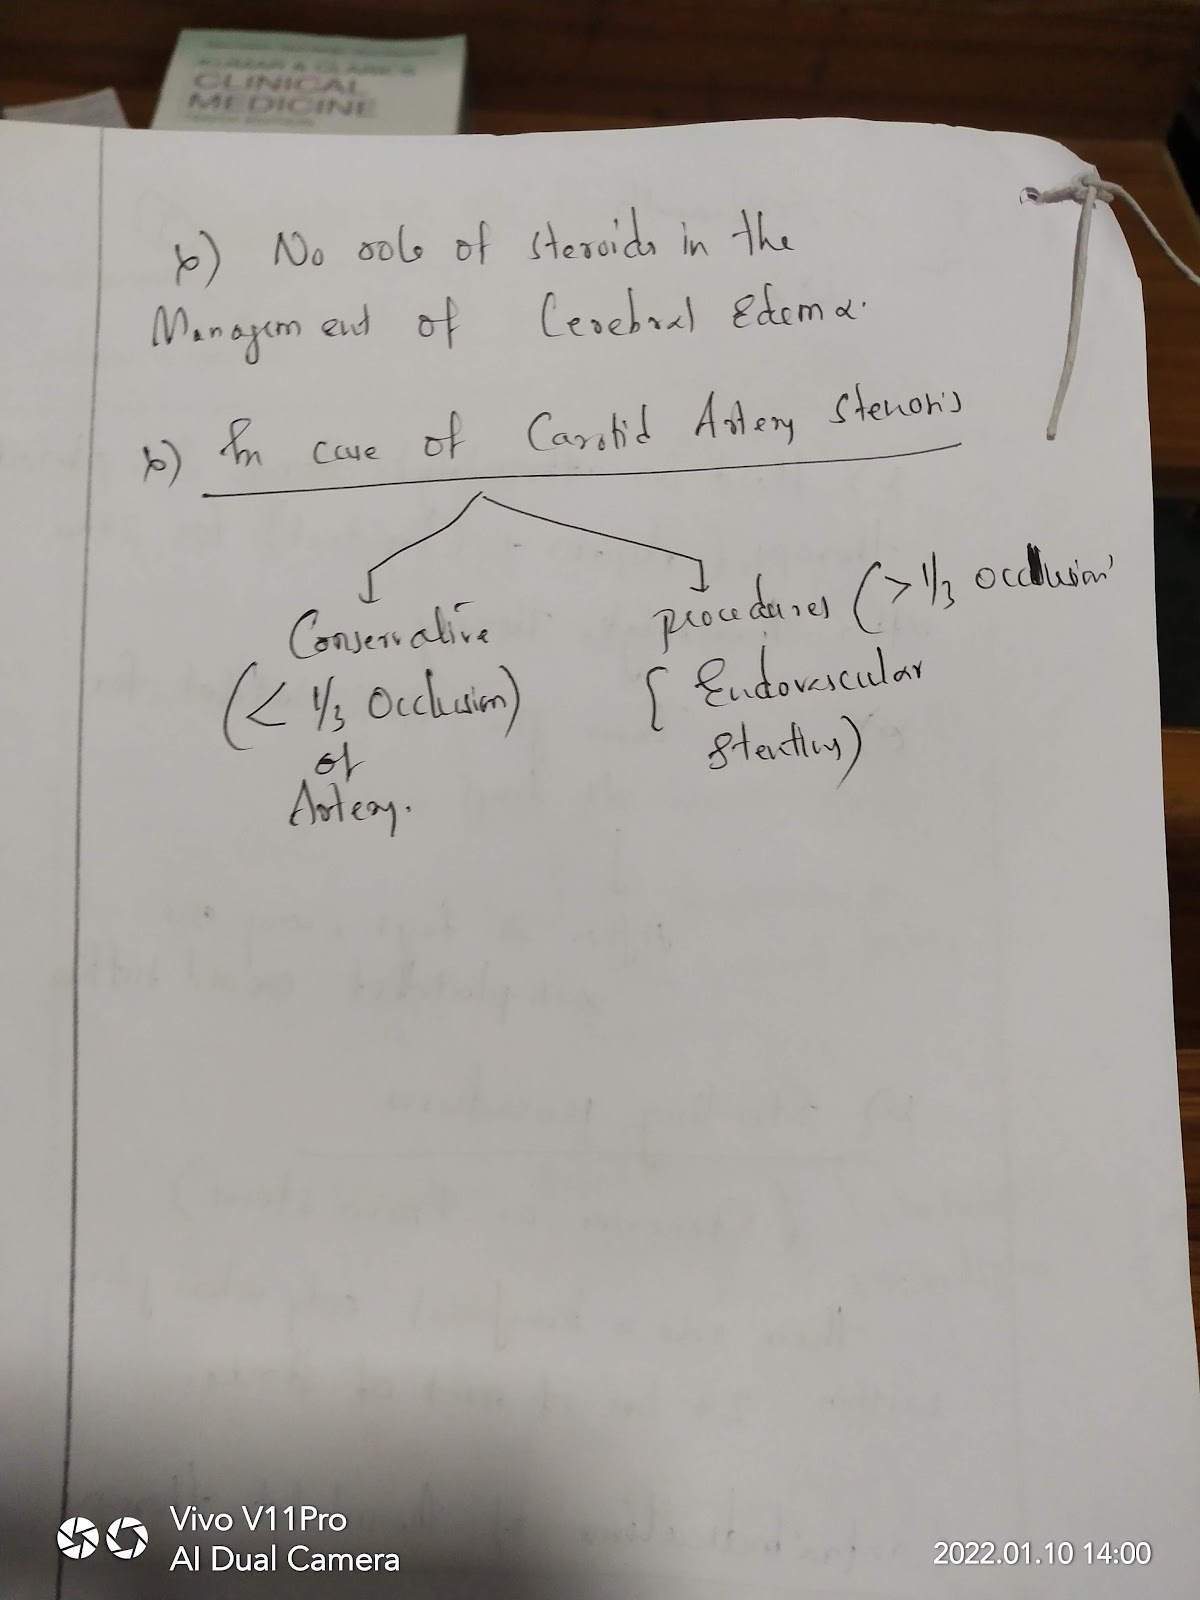 KUMAR & CLARK'S
CLINICAL
MEDICINE
b) No role of steroids in the
Management of Cerebral Edema.
b) In case of Carotid Artery Stenosis
Conservative
(< 1/3 Occlusion)
of
Artery.
procedures (> 1/3 occlusion'
{ Endovascular
stenting)
Vivo V11Pro
AI Dual Camera
2022.01.10 14:00